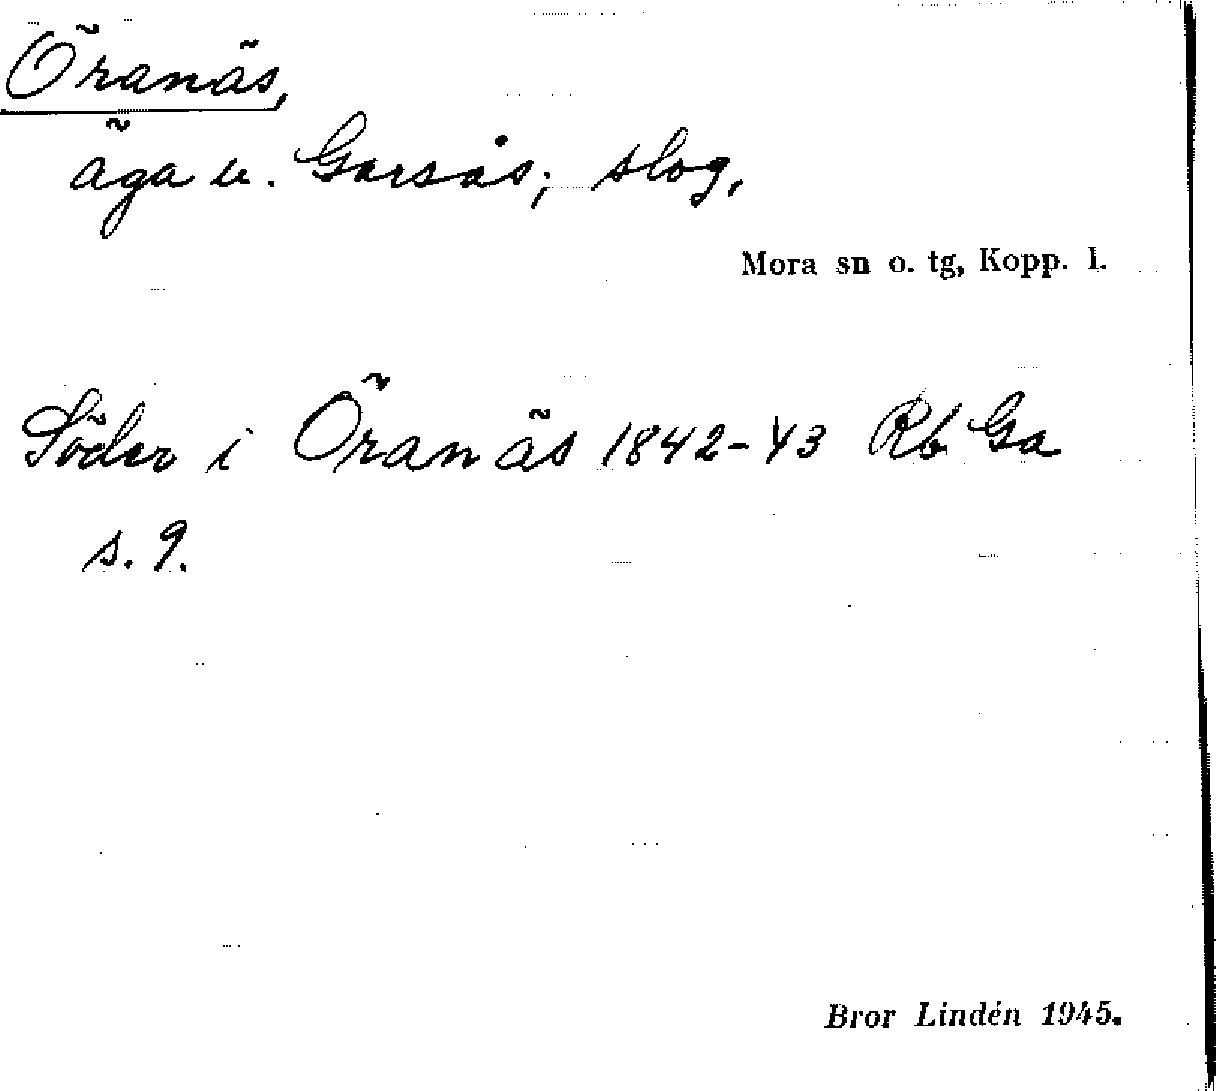 Öranäs,
äga u. Garsås; slog,
Mora sn o. tg, Kopp. l.
Söder i Öranäs 1842-43 Rb Ga
s. 9.
Bror Lindén 1945.